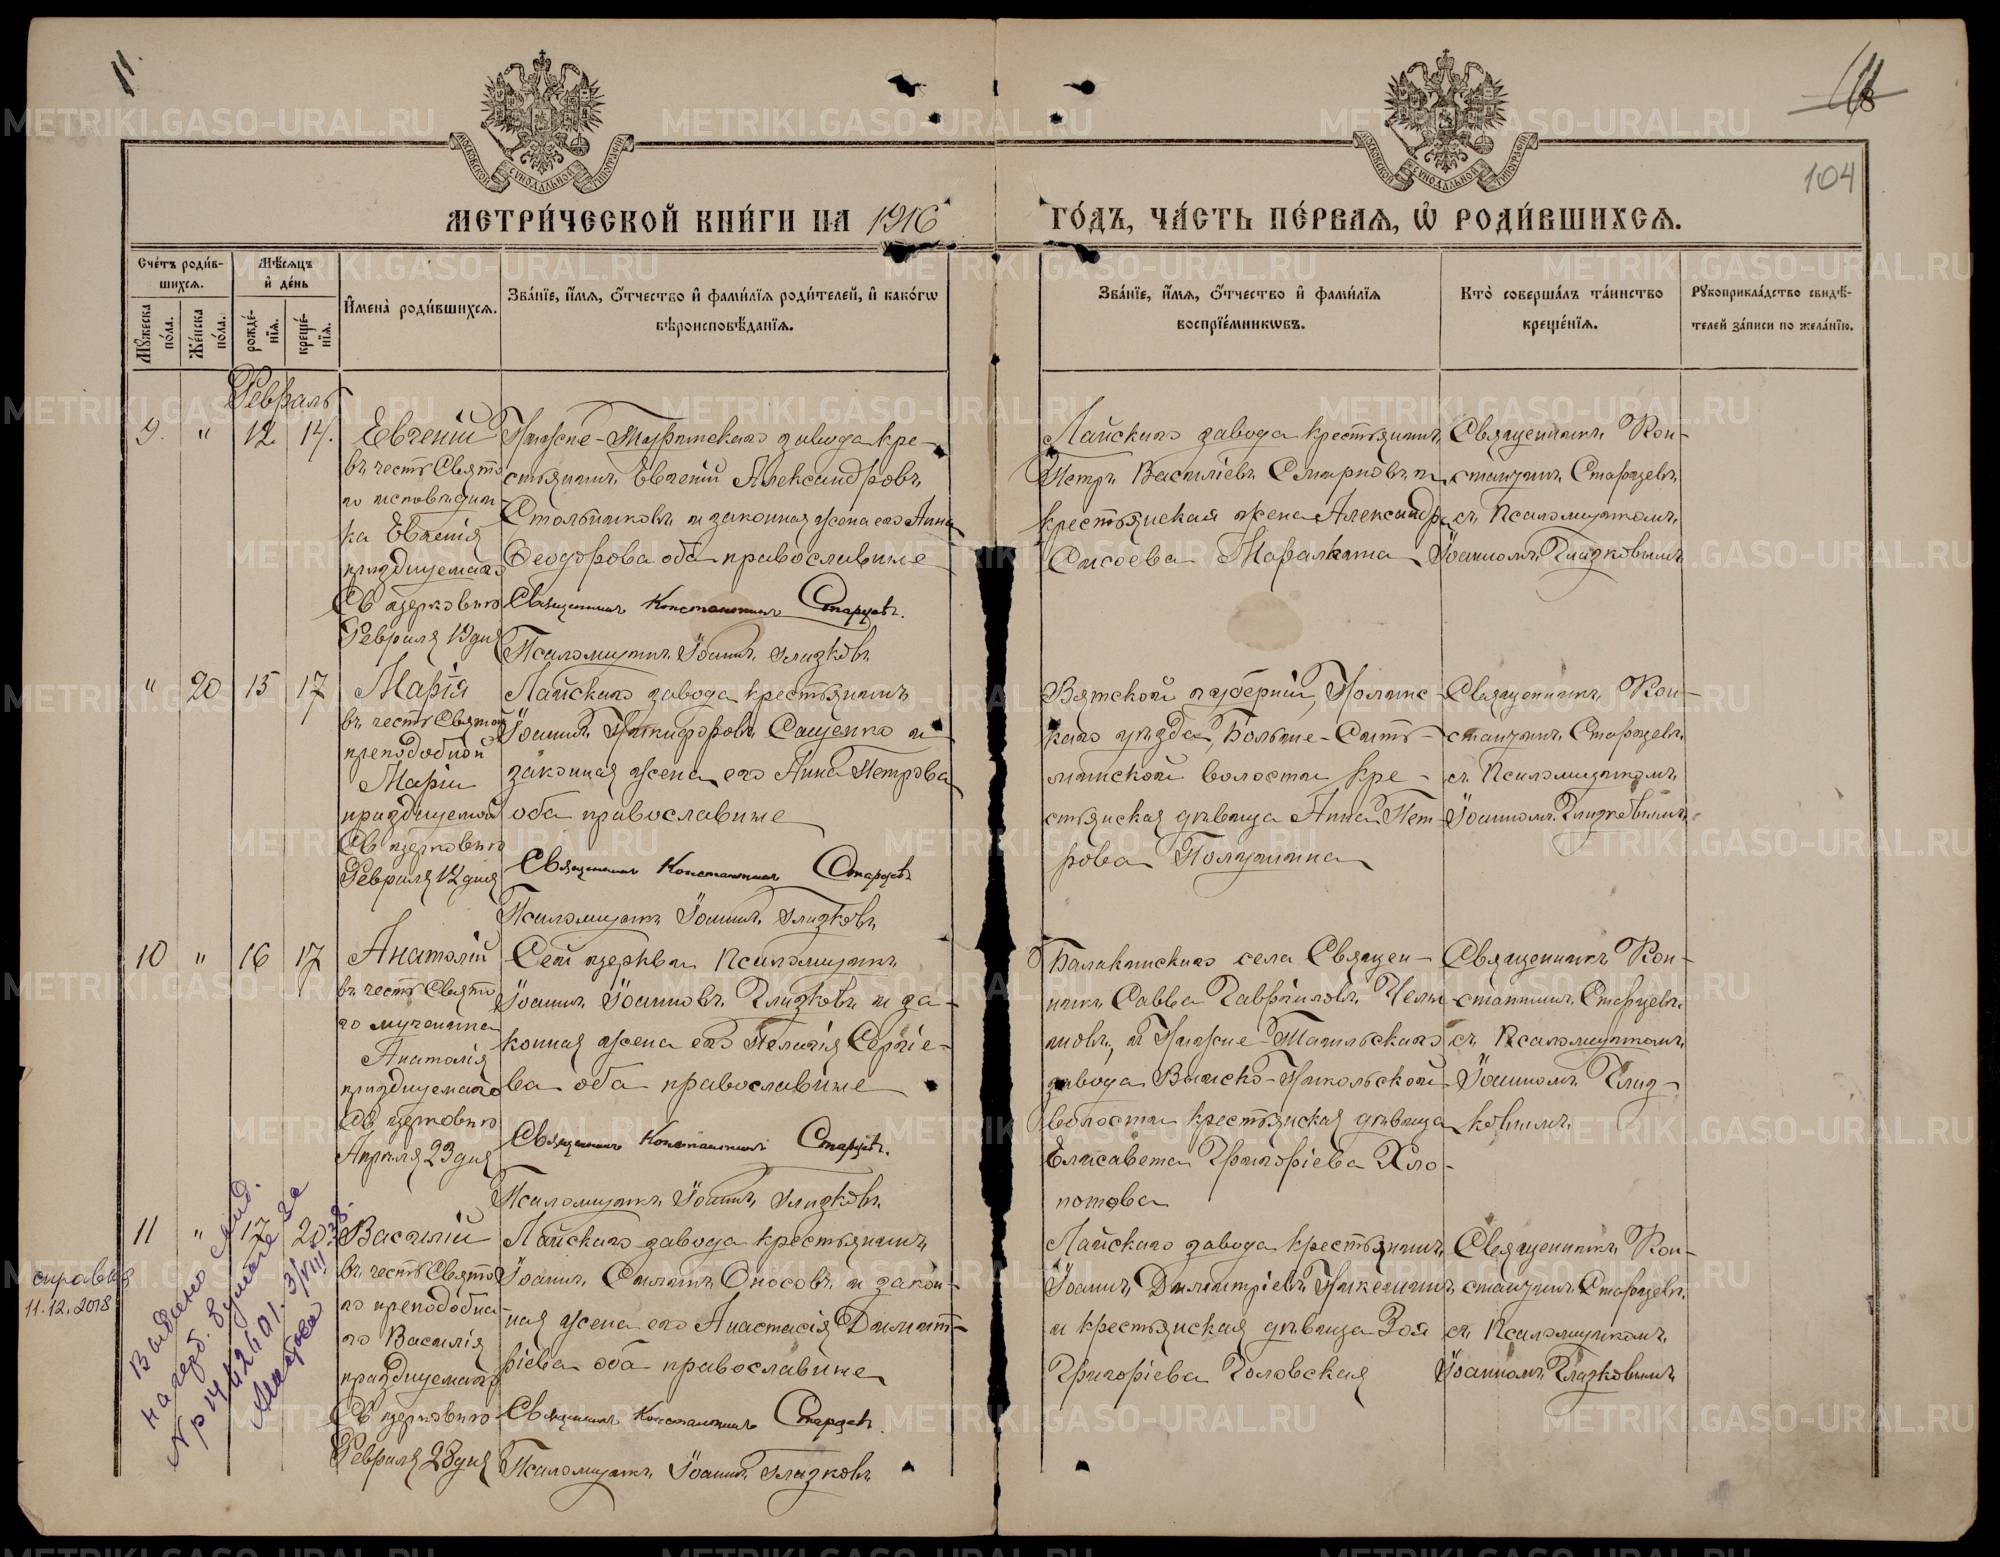 11.
118
104
МЕТРИ́ЧЕСКОЙ КНИ́ГИ НА 1916
ГО́ДЪ, ЧА́СТЬ ПЕ́РВАѦ, Ѡ҆ РОДИ́ВШИХСѦ.
Сче́тъ роди́в-
шихсѧ.
Мѣ́сѧцъ
и҆ де́нь
Мꙋ́жеска по́ла.
Же́нска по́ла.
рожде́-
нїѧ.
креще́-
нїѧ.
И҆мена̀ роди́вшихсѧ.
Зва́нїе, и҆́мѧ, ѻ҆́тчество и҆ фами́лїѧ роди́телей, и҆ како́гѡ
вѣроисповѣ́данїѧ.
Зва́нїе, и҆́мѧ, ѻ҆́тчество и҆ фами́лїѧ
воспрїе́мникѡвъ.
Кто̀ соверша́лъ та́инство
креще́нїѧ.
Рꙋкоприкла́дство свидѣ́-
телей за́писи по жела́нїю.
Февраль
9. " 12 14.
Евгеній
въ честь Свято
го исповѣдни-
ка Евгенія
празднуемаго
Св церковью
Февраля 19 дня
Нижне-Туринскаго завода кре-
стьянинъ Евгеній Александровъ
Стольниковъ и законная жена его Анна
Феодорова оба православные
Священникъ Константинъ Старцевъ.
Псаломщикъ Іоаннъ Глазковъ
Лайскаго завода крестьянинъ
Петръ Василіевъ Смирновъ и
крестьянская жена Александра
Сисоева
Священникъ Кон-
стантинъ Старцевъ
съ Псаломщикомъ
Іоанномъ Глазковымъ
" 20 15 17
Марія
въ честь Святой
преподобной
Маріи
празднуемой
Св церковью
Февраля 12 дня
Лайскаго завода крестьянинъ
Іоаннъ Никифоровъ Сащенко и
законная жена его Анна Петрова
оба православные
Священникъ Константинъ Старцевъ
Псаломщикъ Іоаннъ Глазковъ
Вятской губерніи, Нолинс-
каго уѣзда, Больше-Сить-
минской волости кре-
стьянская дѣвица Анна Пет-
рова
Священникъ Кон-
стантинъ Старцевъ
съ Псаломщикомъ
Іоанномъ Глазковымъ
10 " 16 17
Анатолій
въ честь Свято
го мученика
Анатолія
празднуемаго
Св церковью
Апрѣля 23 дня
Сей церкви Псаломщикъ
Іоаннъ Іоанновъ Глазковъ и за-
конная жена его Пелагія Сергіе-
ва оба православные
Священникъ Константинъ Старцевъ.
Псаломщикъ Іоаннъ Глазковъ
Балакинскаго села Священ-
никъ Савва Гавріиловъ
и Нижне-Тагильскаго
завода Выйско-Никольской
волости крестьянская дѣвица
Елисавета Григоріева Хло-
потова
Священникъ Кон-
стантинъ Старцевъ
съ Псаломщикомъ
Іоанномъ Глаз-
ковымъ
11 " 17 20
Василій
въ честь Свято
го преподобна-
го Василія
празднуемаго
Св церковью
Февраля 28 дня
Лайскаго завода крестьянинъ
Іоаннъ Силинъ Оносовъ и закон-
ная жена его Анастасія Димит-
ріева оба православные
Священникъ Константинъ Старцевъ
Псаломщикъ Іоаннъ Глазковъ
Лайскаго завода крестьянинъ
Іоаннъ Димитріевъ
и крестьянская дѣвица Зоя
Григоріева Головская
Священникъ Кон-
стантинъ Старцевъ
съ Псаломщикомъ
Іоанномъ Глазковымъ
Выдано свид.
на герб. бумаге за
№
справка
11.12.2018
METRIKI.GASO-URAL.RU